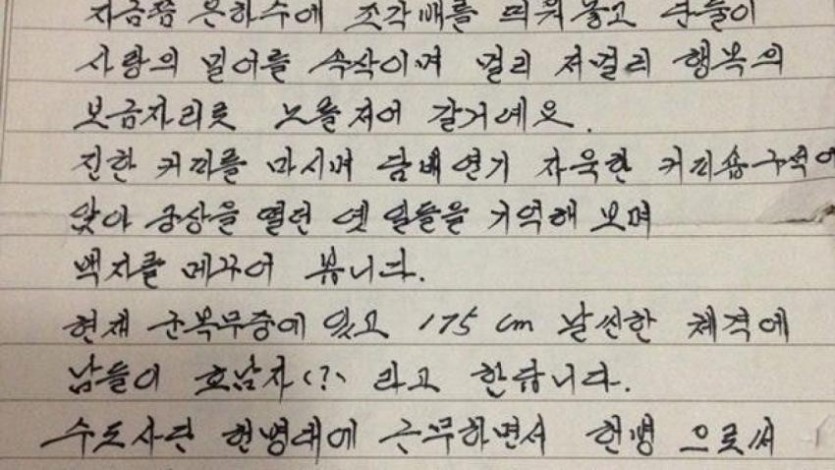 지금쯤 은하수에 조각배를 띄워놓고 단둘이
사랑의 밀어를 속삭이며 멀리 저멀리 행복의
보금자리로 노를저어 갈거예요.
진한 커피를 마시며 담배연기 자욱한 커피숍구석에
앉아 궁상을 떨던 옛 일들을 기억해 보며
백지를 메꾸어 봅니다.
현재 군복무중에 있고 175 cm 날씬한 체격에
남들이 호남자(?) 라고 한답니다.
수도사단 헌병대에 근무하면서 헌병 으로써